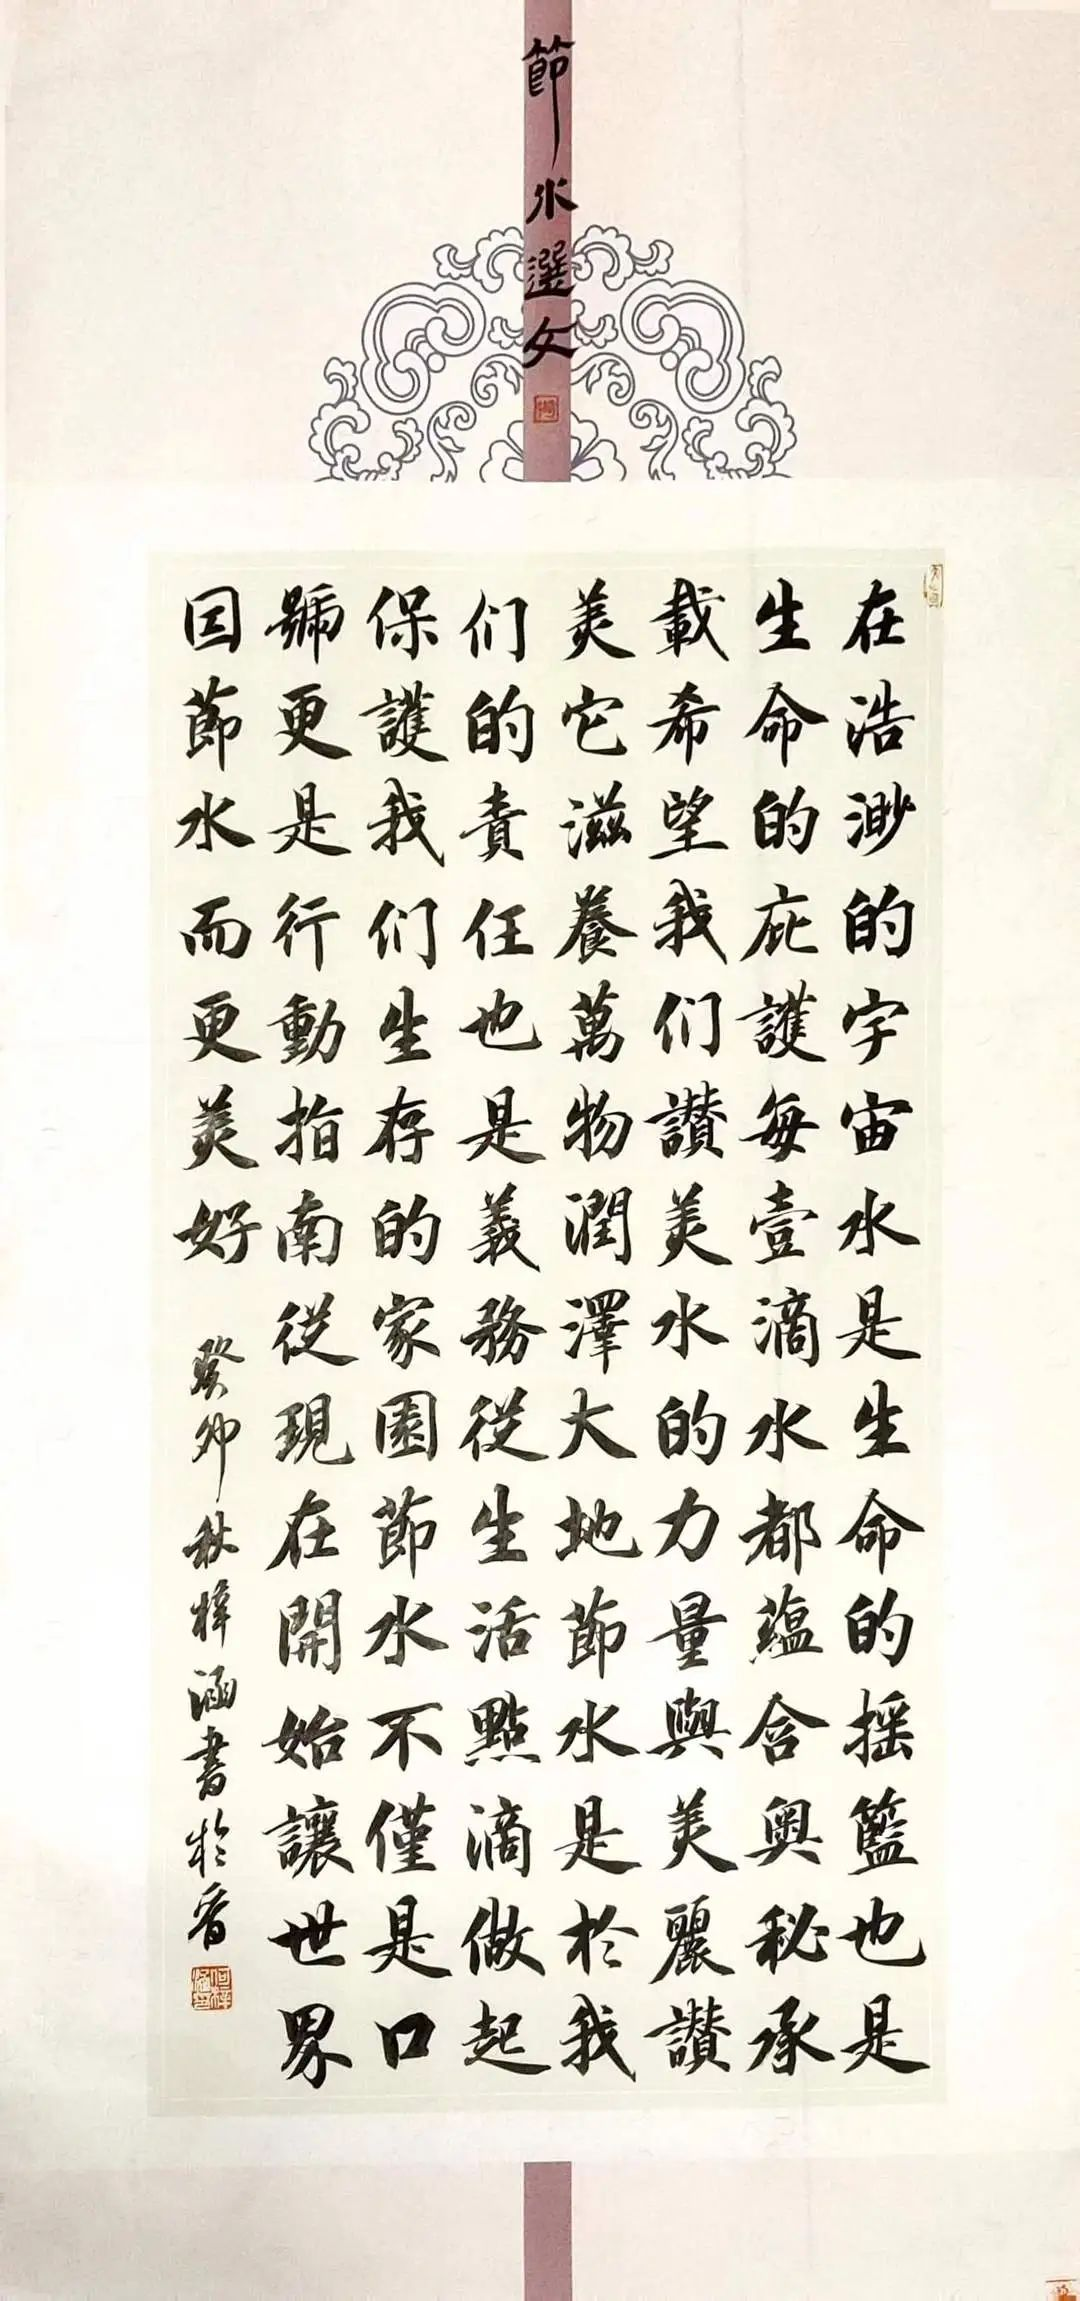 節水選文
在浩渺的宇宙水是生命的摇籃也是
生命的庇護每壹滴水都蕴含奥秘承
載希望我们讃美水的力量與美麗讃
美它滋養萬物潤澤大地節水是於我
们的責任也是義務從生活點滴做起
保護我们生存的家園節水不僅是口
號更是行動指南從現在開始讓世界
因節水而更美好
癸卯秋梓涵書於晋